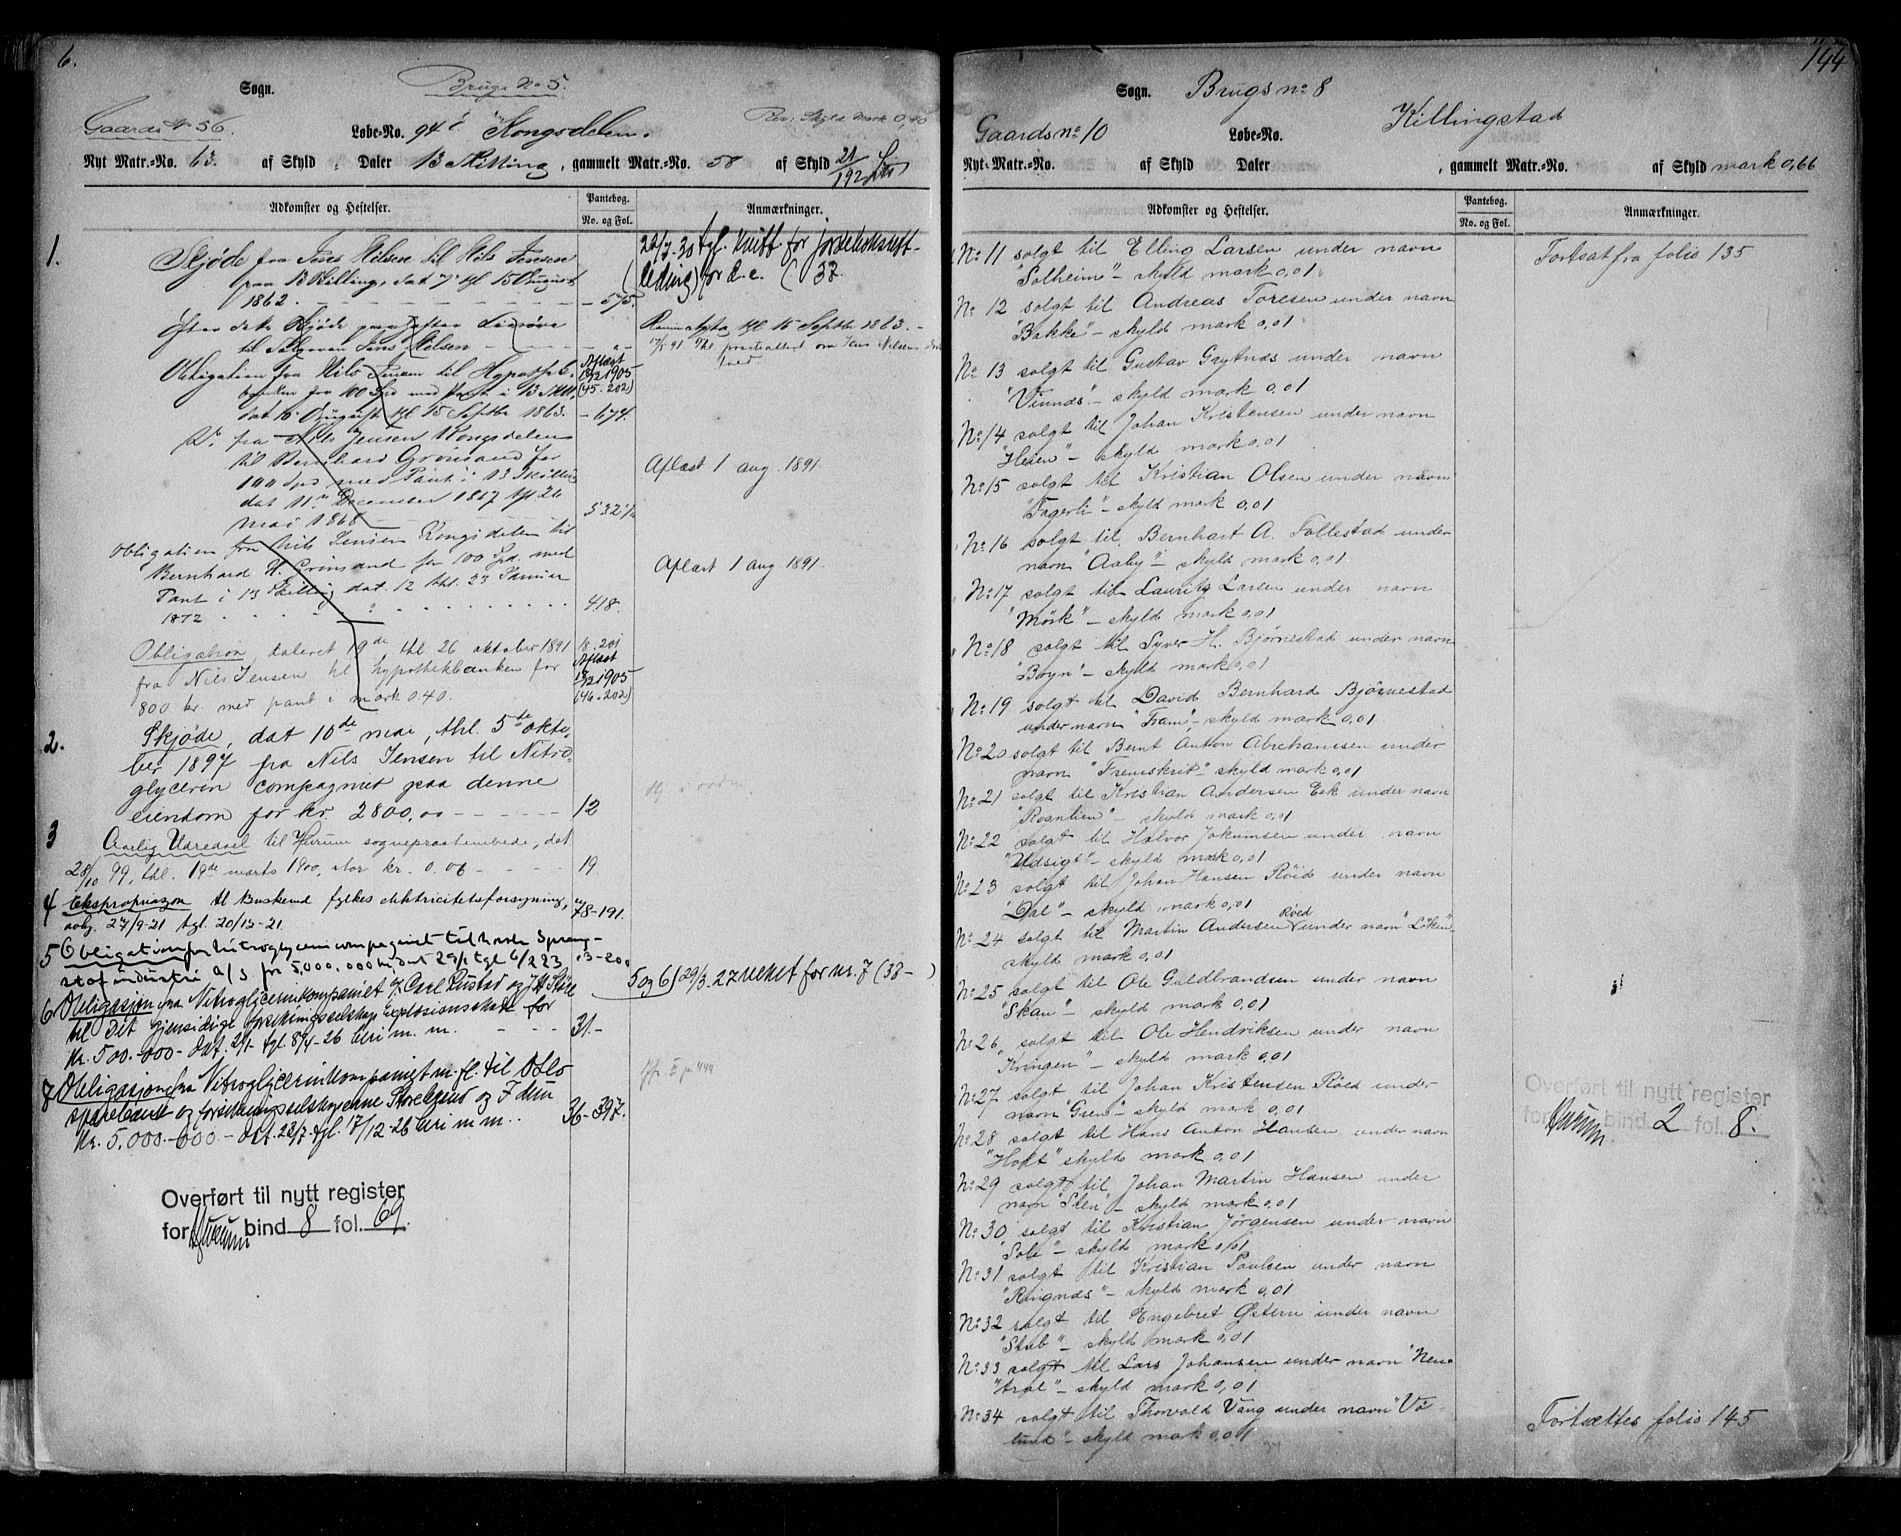 6.
Sogn.
Brugs No 5.
Gaards No 56.
Løbe-No. 94 Kongsdelen.
Rev: Skyld Mark 0,40
Nyt Matr.-No. 63. af Skyld Daler 13 Skilling, gammelt Matr.-No. 58 af Skyld 21/192
Adkomster og Heftelser.
Pantebog.
No. og Fol.
Anmærkninger.
1. Skjøde fra Jens Nilsen til Nils Jensen
paa 13 Skilling, dat 7 tgl 15 August
1862. - 575.
Efter dette Skjøde paahefter Livøre
til Sælgeren Jens Nilsen - "-
Obligation fra Nils Jensen til Hypothek-
banken for 100 Spd med Pant i 13 Skill,
dat 15 August tgl 15 Septbr 1863. - 674.
Aflæst
13/2 1905
(45-202)
Do fra Nils Jensen Kongsdelen
til Bernhard Grönsand for
100 Spd med Pant i 13 Skilling
dat 11te December 1867 tgl 26
Mai 1868 532
Obligation fra Nils Jensen Kongsdelen til
Bernhard H. Grönsand for 100 Spd. med
Pant i 13 Skilling dat. 12 thl. 23 Januar
1872 418.
Obligation, dateret 19de, thl. 26 oktober 1891 18.201
fra Nils Jensen til hypothekbanken for
800 kr. med pant i mark 0.40.
Aflæst
13/2 1905
(46-202)
2. Skjøde, dat 10de mai, thl. 5te okto-
ber 1897 fra Nils Jensen til Nitro-
glycerin compagniet paa denne
eiendom for kr. 2800,00 - 12
3 Aarlig Udredsel til Hurum sogneprestembede, dat
28/10 99, thl. 19de marts 1900, stor kr. 0.06 - 19
4 Ekspropriasjon til Buskerud fylkes elektricitetsforsyning,
avhj. 27/9-21 tgl. 20/12-21. 48-191.
5 Obligation fra Nitroglycerincompagniet til norsk Spræng-
stofindustri a/s for 5,000,000 kr, dat 29/1 tgl 6/2 23 3-200
6 Obligasjon fra Nitroglycerinkompaniet v/ Carl Rustad og
til Det gjensidige forsikringsselskap Explosionsskade for
Kr. 500.000- dat. 2/1- tgl. 8/4-26 Eri m. m. 31.-
7 Obligasjon fra Nitroglycerinkompaniet m. fl. til Oslo
sparebank og forsikringsselskapene Storebrand og Idun
Kr. 5.000.000- dat. 23/7. tgl. 17/12-26 Eri m m.. 36-397.
Overført til nytt register
for Hurum bind 8 fol. 69
22/7-30 tgl. kvitt for
for d.e. (32.
tgl 15 Septbr 1863.
Aflæst 1 aug. 1891.
Aflæst 1 aug 1891.
5 og 6) 29/3.27 veket for nr. 7 (33- )
144
Sogn. Brugs no 8
Gaards no 10 Løbe-No. Killingstad
Nyt Matr.-No. af Skyld Daler , gammelt Matr.-No. af Skyld mark 0,66
Adkomster og Heftelser.
Pantebog.
No. og Fol.
Anmærkninger.
No 11 solgt til Elling Larsen under navn
"Solheim" - skyld mark 0,01
Fortsat fra folio 135
No 12 solgt til Andreas Toresen under navn
"Bakke" - skyld mark 0,01
No 13 solgt til Gustav Grytnæs under navn
"Vinnæs" - skyld mark 0,01
No 14 solgt til Johan Kristensen under navn
"Heien" - skyld mark 0,01
No 15 solgt til Kristian Olsen under navn
"Fagerli" - skyld mark 0,01
No 16 solgt til Bernhart A. Follestad under
navn "Aaby" - skyld mark 0,01
No 17 solgt til Lauritz Larsen under navn
"Mörk" - skyld mark 0,01
No 18 solgt til Syver H. Bjørnestad under navn
"Boyn" - skyld mark 0,01
No 19 solgt til David Bernhard Bjørnestad
under navn "Fram", - skyld mark 0,01
No 20 solgt til Bernt Anton Abrahamsen under
navn "Fremskrit" - skyld mark 0,01
No 21 solgt til Kristian Andersen Eek under navn
"Rognlien" - skyld mark 0,01
No 22 solgt til Halvor Jokumsen under navn
"Udsigt" - skyld mark 0,01
No 23 solgt til Johan Hansen Röid under navn
"Dal" - skyld mark 0,01
No 24 solgt til Martin Andersen Röed under navn "Löken"
skyld mark 0,01
No 25 solgt til Ole Guldbrandsen under navn
"Skau" - skyld mark 0,01
No 26 solgt til Ole Hendriksen under navn
"Kringen" - skyld mark 0,01
No 27 solgt til Johan Kristensen Röed under
navn "Gren" - skyld mark 0,01
No 28 solgt til Hans Anton Hansen under navn
"Holt" skyld mark 0,01
No 29 solgt til Johan Martin Hansen under
navn "Sten" - skyld mark 0,01
No 30 solgt til Kristian Jørgensen under navn
"Sole" - skyld mark 0,01
No 31 solgt til Kristian Paulsen under navn
"Ringnæs" - skyld mark 0,01
No 32 solgt til Engebret Østern under navn
"Stub" - skyld mark 0,01
No 33 solgt til Lars Johansen under navn "Neu-
tral" - skyld mark 0,01
No 34 solgt til Thorvald Vang under navn "Vö-
lund" - skyld mark 0,01
Overført til nytt register
for Hurum bind 2 fol. 8.
Fortsættes folio 145